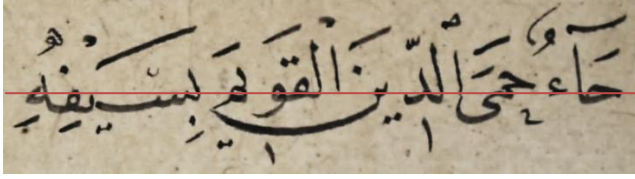 حَآءُ حِمَى ٱلدِّينَ الْقَوِيمَ بِسَيْفِهِ